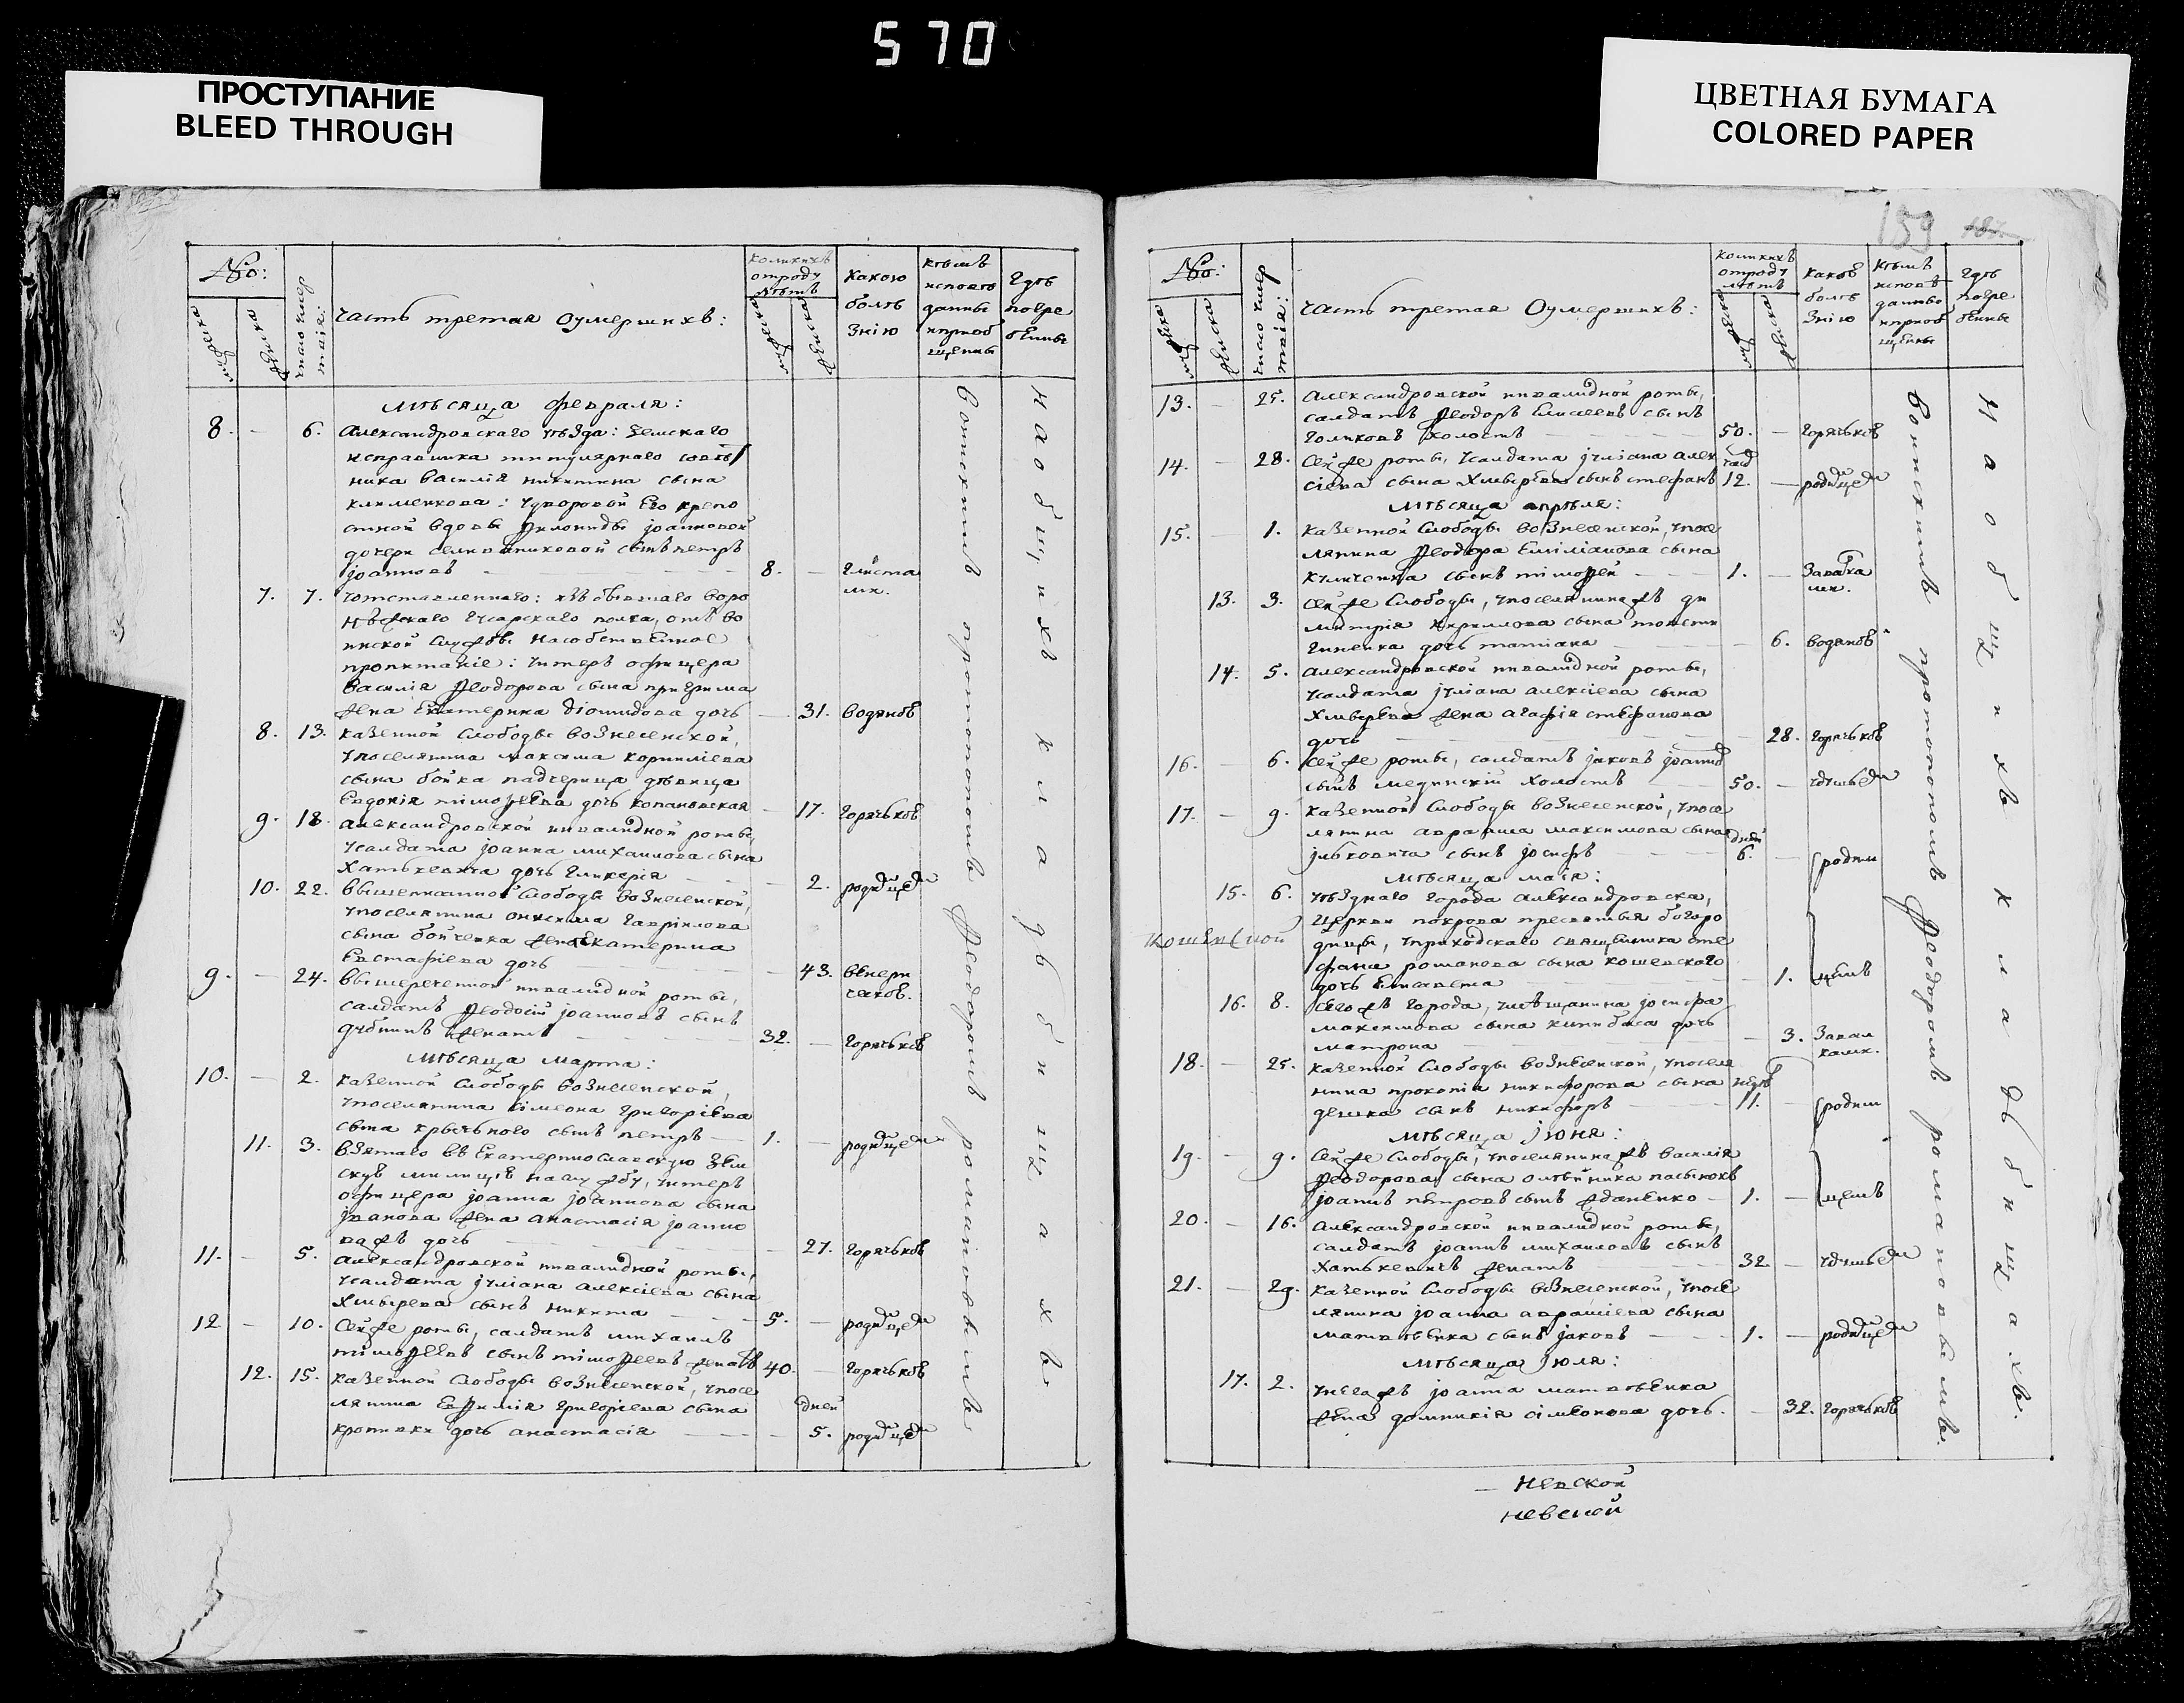 570
ПРОСТУПАНИЕ
BLEED THROUGH
ЦВЕТНАЯ БУМАГА
COLORED PAPER
No:
мужска
женска
число умер
толіка
отроду
лѣтъ
какою
болѣ
знію
кѣмъ
исповѣ
даны
и приоб
щены
гдѣ
погре
бены
Часть третая Оумершихъ:
мѣсяца февраля:
8. — 6. Александровскаго уѣзда: земскаго
исправника титулярнаго совѣт
ника василія никитина сына
клименкова: у дворовой Его крепо
стной вдовы филониды іоанновой
дочери сынъ петръ
іоанновъ 8. —
7. 7. у отставленнаго: изъ бывшаго
гусарскаго полка, отъ во
инской службы на собственное
пропитаніе: унтеръ офицера
василія феодорова сына
жена Екатерина діомидова дочь — 31. водяноѣ
8. 13. казенной слободы вознесенской,
у поселянина максима корниліева
сына бойка падчерица дѣвица
Евдокія тімофеева дочь копановская — 17. горячькоѣ
9. 18. александровской инвалидной роты,
у салдата іоанна михаилова сына
Хатькевича дочь гликерія — 2. родимцемъ
10. 22. вышеписанной слободы вознесенской,
у поселянина онисима гавріилова
сына бойченка жена Екатерина
Евстафіева дочь — 43.
9. — 24. вышереченной инвалидной роты,
салдатъ феодосій іоанновъ сынъ
дубнинъ женатъ 32. — горячькоѣ
мѣсяца марта:
10. — 2. казенной слободы вознесенской,
у поселянина сімеона григоріева
сына сынъ петръ 1. — родимцемъ
11. 3. взятаго въ Екатеринославскую зем
скую милицію на службу, унтеръ
офицера іоанна іоаннова сына
іванова жена анастасія іоанно
ва жъ дочь — 27. горячькоѣ
11. — 5. александровской инвалидной роты,
у салдата іуліана алексіева сына
Хмырева сынъ никита 5. — родимцемъ
12 — 10. сей же роты, салдатъ михаилъ
тімофеевъ сынъ тімофеевъ женатъ 40. — горячькоѣ
12. 15. казенной слободы вознесенской, у посе
лянина Евфимія григоріева сына
кротовки дочь анастасія — дней 5. родимцемъ
воинскимъ протопопомъ феодоромъ романовымъ
на общихъ кладбищахъ
159
No:
Часть третая Оумершихъ:
мужска
женска
какоѣ
болѣ
знію
кѣмъ
исповѣ
даны
и приоб
щены
гдѣ
погре
бены
13. — 25. александровской инвалидной роты,
салдатъ феодоръ Елисеевъ сынъ
голиковъ холостъ 50. — горячькоѣ
14. — 28. сей же роты, у салдата іуліана алек
сіева сына Хмырева сынъ стефанъ 12. — родимцемъ
мѣсяца апрѣля:
15. — 1. казенной слободы вознесенской, у посе
лянина феодора Еміліанова сына
сынъ тімофей 1. —
13. 3. сей же слободы, у поселянина жъ ди
митрія кирилова сына
дочь татіана — 6. водяноѣ
14. 5. александровской инвалидной роты,
у салдата іуліана алексіева сына
Хмырева жена агафія стефанова
дочь — 28. горячькоѣ
16. — 6. сей же роты, салдатъ іаковъ іоанновъ
сынъ мединскій холостъ 50. — удушьемъ
17. — 9. казенной слободы вознесенской, у посе
лянина авраама максимова сына
ильковича сынъ іосифъ дней 6. — родим
мѣсяца маія:
15. 6. уѣзднаго города александровска,
церкви покрова пресвятыя богоро
дицы, у приходскаго священника сте
фана романова сына кошевского
дочь Елисавета — 1. цемъ
Кошевской
16. 8. сего жъ города, у мѣщанина іосифа
максимова сына дочь
матрона — 3.
18. — 25. казенной слободы вознесенской, у поселя
нина прокопія никифорова сына
дешка сынъ никифоръ недѣль 11. — родим
мѣсяца іюня:
19. — 9. сей же слободы, у поселянина жъ василія
феодорова сына олѣйника пасынокъ
іоаннъ петровъ сынъ жданенко 1. — цемъ
20. — 16. александровской инвалидной роты,
салдатъ іоаннъ михаиловъ сынъ
Хатькевичъ женатъ 32. — удушьемъ
21. — 29. казенной слободы вознесенской, у посе
лянина іоанна аврамиева сына
матвѣенка сынъ іаковъ 1. — родимцемъ
мѣсяца іюля:
17. 2. у него жъ іоанна матвѣенка
жена домникія сімеонова дочь. — 32. горячькоѣ
воинскимъ протопопомъ феодоромъ романовымъ.
на общихъ кладбищахъ.
— Невской
невской